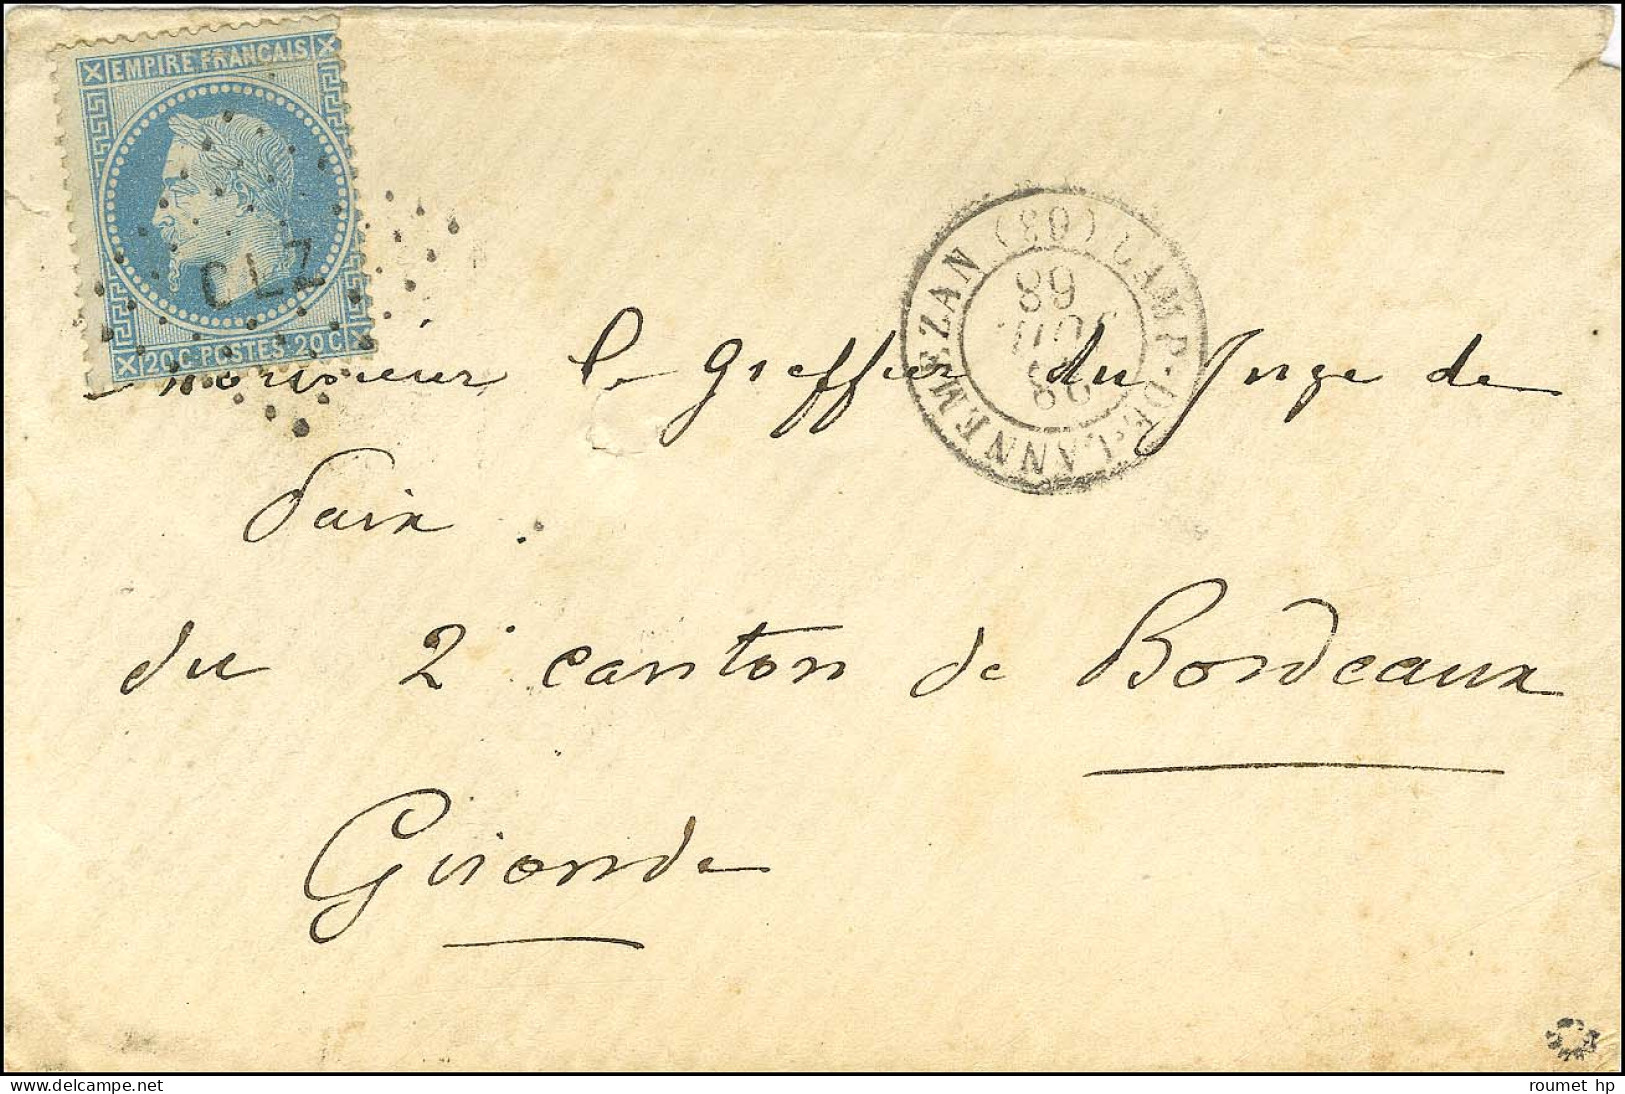 EMPIRE FRANCAIS
CLZ
20C POSTES 20C
CAMP-DE-LANNEMEZAN
68
JUIL.
28
Monsieur le Greffier du Juge de
Paix
du 2e canton de Bordeaux
Gironde
roumet hp